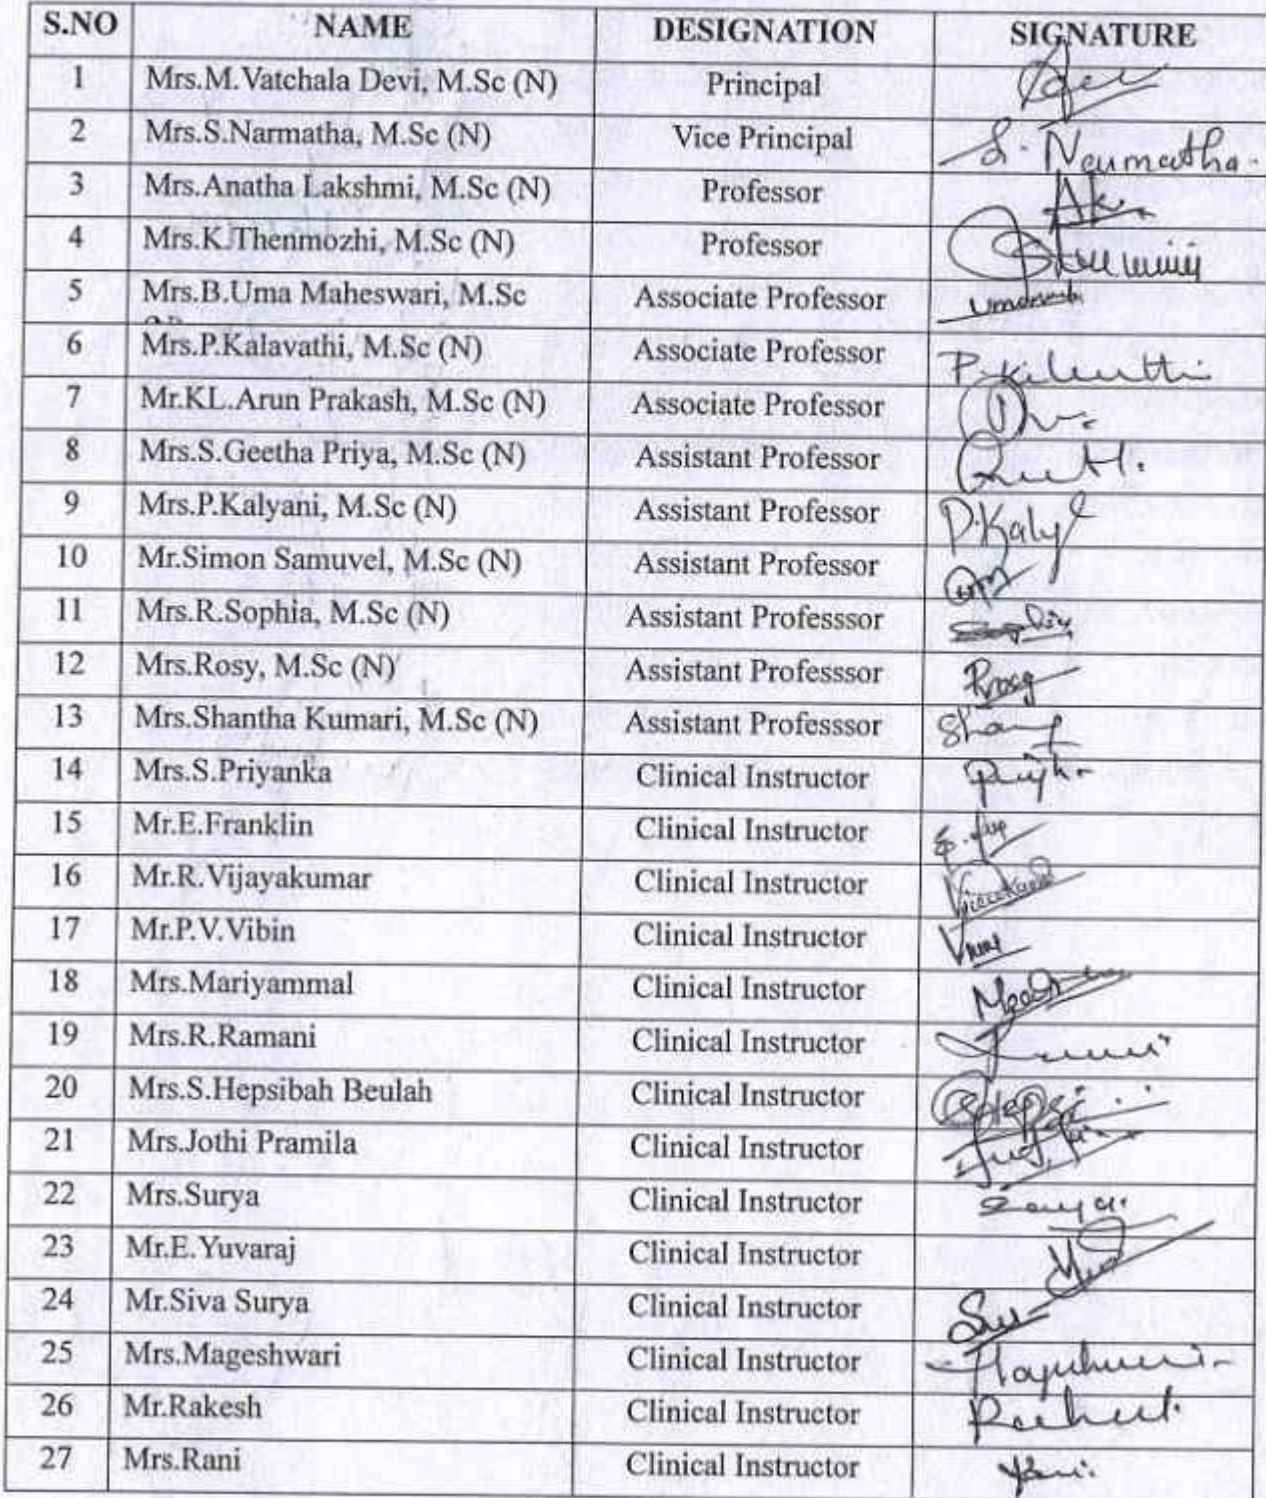 S.NO NAME DESIGNATION SIGNATURE
1 Mrs.M.Vatchala Devi, M.Sc (N) Principal
2 Mrs.S.Narmatha, M.Sc (N) Vice Principal S. Narmatha
3 Mrs.Anatha Lakshmi, M.Sc (N) Professor
4 Mrs.K.Thenmozhi, M.Sc (N) Professor
5 Mrs.B.Uma Maheswari, M.Sc Associate Professor
6 Mrs.P.Kalavathi, M.Sc (N) Associate Professor
7 Mr.KL.Arun Prakash, M.Sc (N) Associate Professor
8 Mrs.S.Geetha Priya, M.Sc (N) Assistant Professor
9 Mrs.P.Kalyani, M.Sc (N) Assistant Professor P.Kaly
10 Mr.Simon Samuvel, M.Sc (N) Assistant Professor
11 Mrs.R.Sophia, M.Sc (N) Assistant Professsor
12 Mrs.Rosy, M.Sc (N) Assistant Professsor
13 Mrs.Shantha Kumari, M.Sc (N) Assistant Professsor
14 Mrs.S.Priyanka Clinical Instructor
15 Mr.E.Franklin Clinical Instructor
16 Mr.R.Vijayakumar Clinical Instructor
17 Mr.P.V.Vibin Clinical Instructor
18 Mrs.Mariyammal Clinical Instructor
19 Mrs.R.Ramani Clinical Instructor
20 Mrs.S.Hepsibah Beulah Clinical Instructor
21 Mrs.Jothi Pramila Clinical Instructor
22 Mrs.Surya Clinical Instructor
23 Mr.E.Yuvaraj Clinical Instructor
24 Mr.Siva Surya Clinical Instructor
25 Mrs.Mageshwari Clinical Instructor
26 Mr.Rakesh Clinical Instructor
27 Mrs.Rani Clinical Instructor